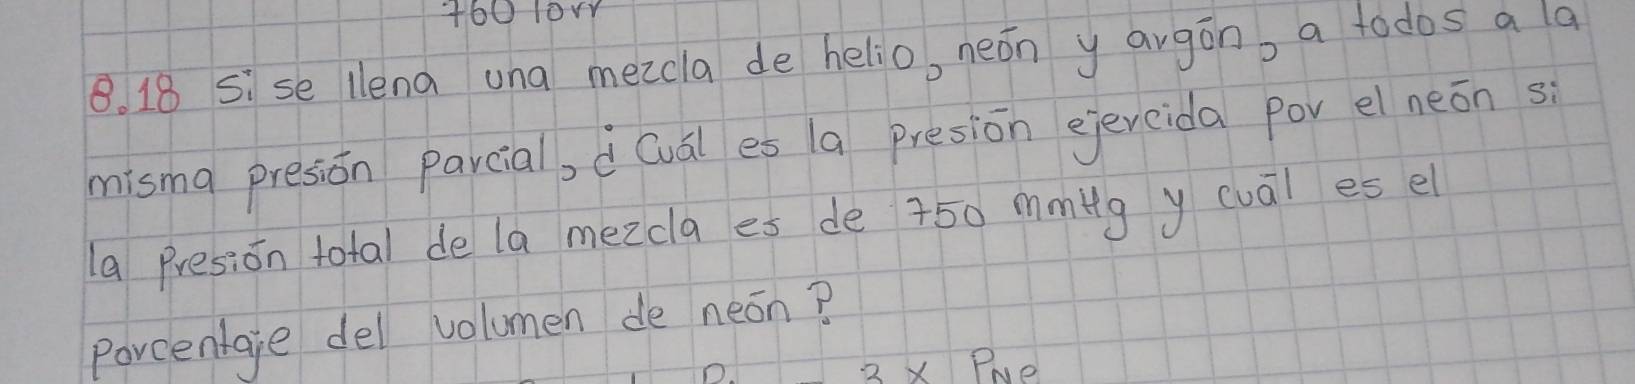 760 Torr
8.18 Si se llena una mezcla de helio, neón y argón, a todos a la
misma presión parcial, ¿Cuál es la presión ejercida por el neón si
la presión total de la mezcla es de 750 mmHg y cuál es el
porcentaje del volumen de neón?
3 x PNe